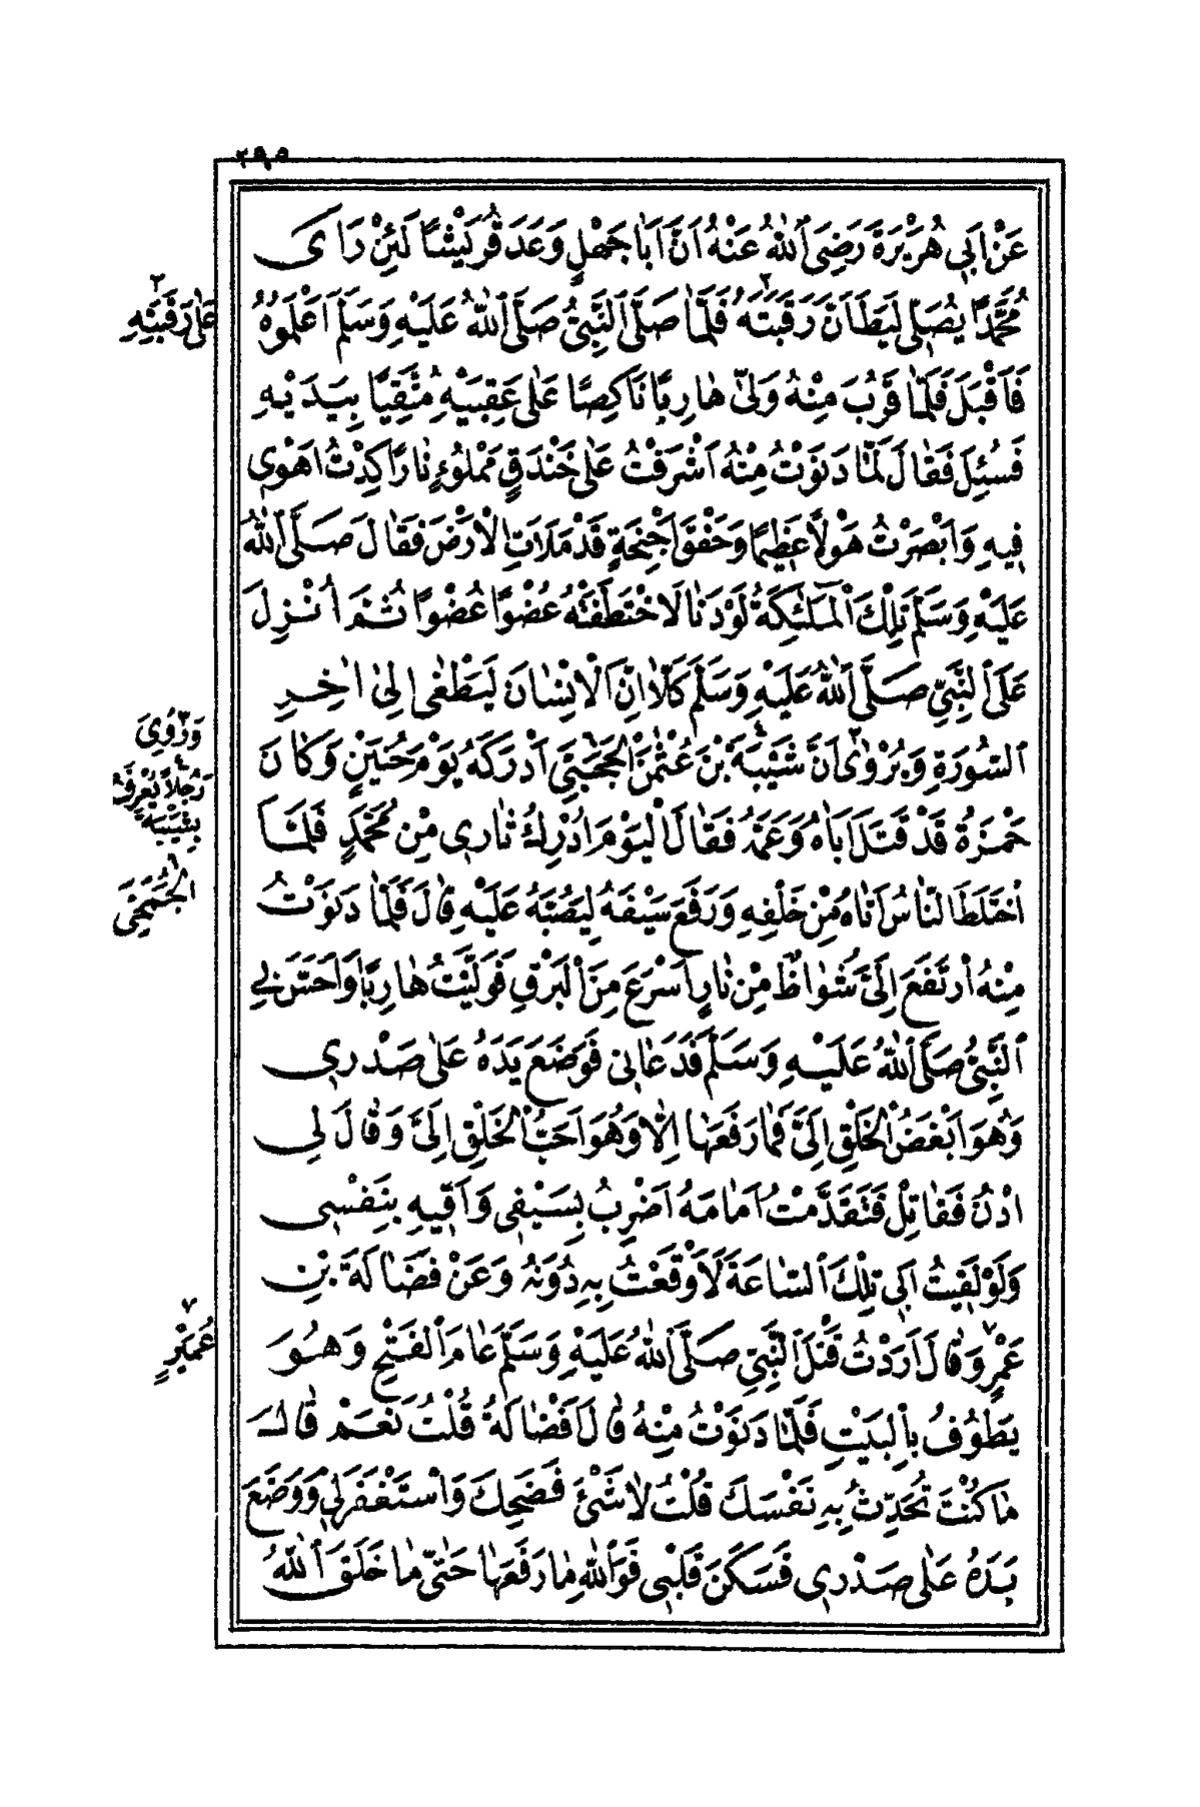 ٢٩٥
عَنْ اَبِي هُرَيْرَةَ رَضِيَ اللهُ عَنْهُ اَنَّ اَبَا جَهْلٍ وَعَدَ قُرَيْشًا لَئِنْ رَاٰى
مُحَمَّدًا يُصَلّى لَيَطَاَنَّ رَقَبَتَهُ فَلَمَّا صَلَّى النَّبِىُّ صَلَّى اللهُ عَلَيْهِ وَسَلَّمَ اَعْلَمُوهُ
فَاَقْبَلَ فَلَمَّا قَرُبَ مِنْهُ وَلّٰى هَارِبًا نَاكِصًا عَلٰى عَقِبَيْهِ مُتَّقِيًا بِيَدَيْهِ
فَسُئِلَ فَقَالَ لَمَّا دَنَوْتُ مِنْهُ اَشْرَفْتُ عَلٰى خَنْدَقٍ مَمْلُوءٍ نَارًا كِدْتُ اَهْوِى
فِيهِ وَاَبْصَرْتُ هَوْلًا عَظِيمًا وَخَفْقَ اَجْنِحَةٍ قَدْ مَلَاَتِ الْاَرْضَ فَقَالَ صَلَّى اللهُ
عَلَيْهِ وَسَلَّمَ تِلْكَ الْمَلٰئِكَةُ لَوْ دَنَا لَاخْتَطَفَتْهُ عُضْوًا عُضْوًا ثُمَّ اُنْزِلَ
عَلَى النَّبِيِّ صَلَّى اللهُ عَلَيْهِ وَسَلَّمَ كَلَّا اِنَّ الْاِنْسَانَ لَيَطْغٰى اِلٰى اٰخِرِ
السُّورَةِ وَيُرْوٰى اَنَّ شَيْبَةَ بْنَ عُثْمٰنَ الْحَجَبِيَّ اَدْرَكَهُ يَوْمَ حُنَيْنٍ وَكَانَ
حَمْزَةُ قَدْ قَتَلَ اَبَاهُ وَعَمَّهُ فَقَالَ الْيَوْمَ اُدْرِكُ ثَارِى مِنْ مُحَمَّدٍ فَلَمَّا
اخْتَلَطَ النَّاسُ اَتَاهُ مِنْ خَلْفِهِ وَرَفَعَ سَيْفَهُ لِيَصُبَّهُ عَلَيْهِ قَالَ فَلَمَّا دَنَوْتُ
مِنْهُ ارْتَفَعَ اِلَىَّ شُوَاظٌ مِنْ نَارٍ اَسْرَعَ مِنَ الْبَرْقِ فَوَلَّيْتُ هَارِبًا وَاَحَسَّ بِي
النَّبِيُّ صَلَّى اللهُ عَلَيْهِ وَسَلَّمَ فَدَعَانِى فَوَضَعَ يَدَهُ عَلٰى صَدْرِي
وَهُوَ اَبْغَضُ الْخَلْقِ اِلَىَّ فَمَا رَفَعَهَا اِلَّا وَهُوَ اَحَبُّ الْخَلْقِ اِلَىَّ وَقَالَ لِى
ادْنُ فَقَاتِلْ فَتَقَدَّمْتُ اَمَامَهُ اَضْرِبُ بِسَيْفِى وَاَقِيهِ بِنَفْسِى
وَلَوْ لَقِيتُ اَبِى تِلْكَ السَّاعَةَ لَاَوْقَعْتُ بِهِ دُونَهُ وَعَنْ فَضَالَةَ بْنِ
عَمْرٍو قَالَ اَرَدْتُ قَتْلَ النَّبِيِّ صَلَّى اللهُ عَلَيْهِ وَسَلَّمَ عَامَ الْفَتْحِ وَهُوَ
يَطُوفُ بِالْبَيْتِ فَلَمَّا دَنَوْتُ مِنْهُ قَالَ اَفَضَالَةُ قُلْتُ نَعَمْ قَالَ
مَا كُنْتَ تُحَدِّثُ بِهِ نَفْسَكَ قُلْتُ لَا شَىْءَ فَضَحِكَ وَاسْتَغْفَرَ لِي وَوَضَعَ
يَدَهُ عَلٰى صَدْرِى فَسَكَنَ قَلْبِى فَوَاللهِ مَا رَفَعَهَا حَتّٰى مَا خَلَقَ اللهُ
٢
عَلٰى رَقَبَتِهِ
وَرُوِيَ
رَجُلًا يُعْرَفُ
بِشَيْبَةَ
الْجُمَحِيِّ
٧
عُمَيْرٍ